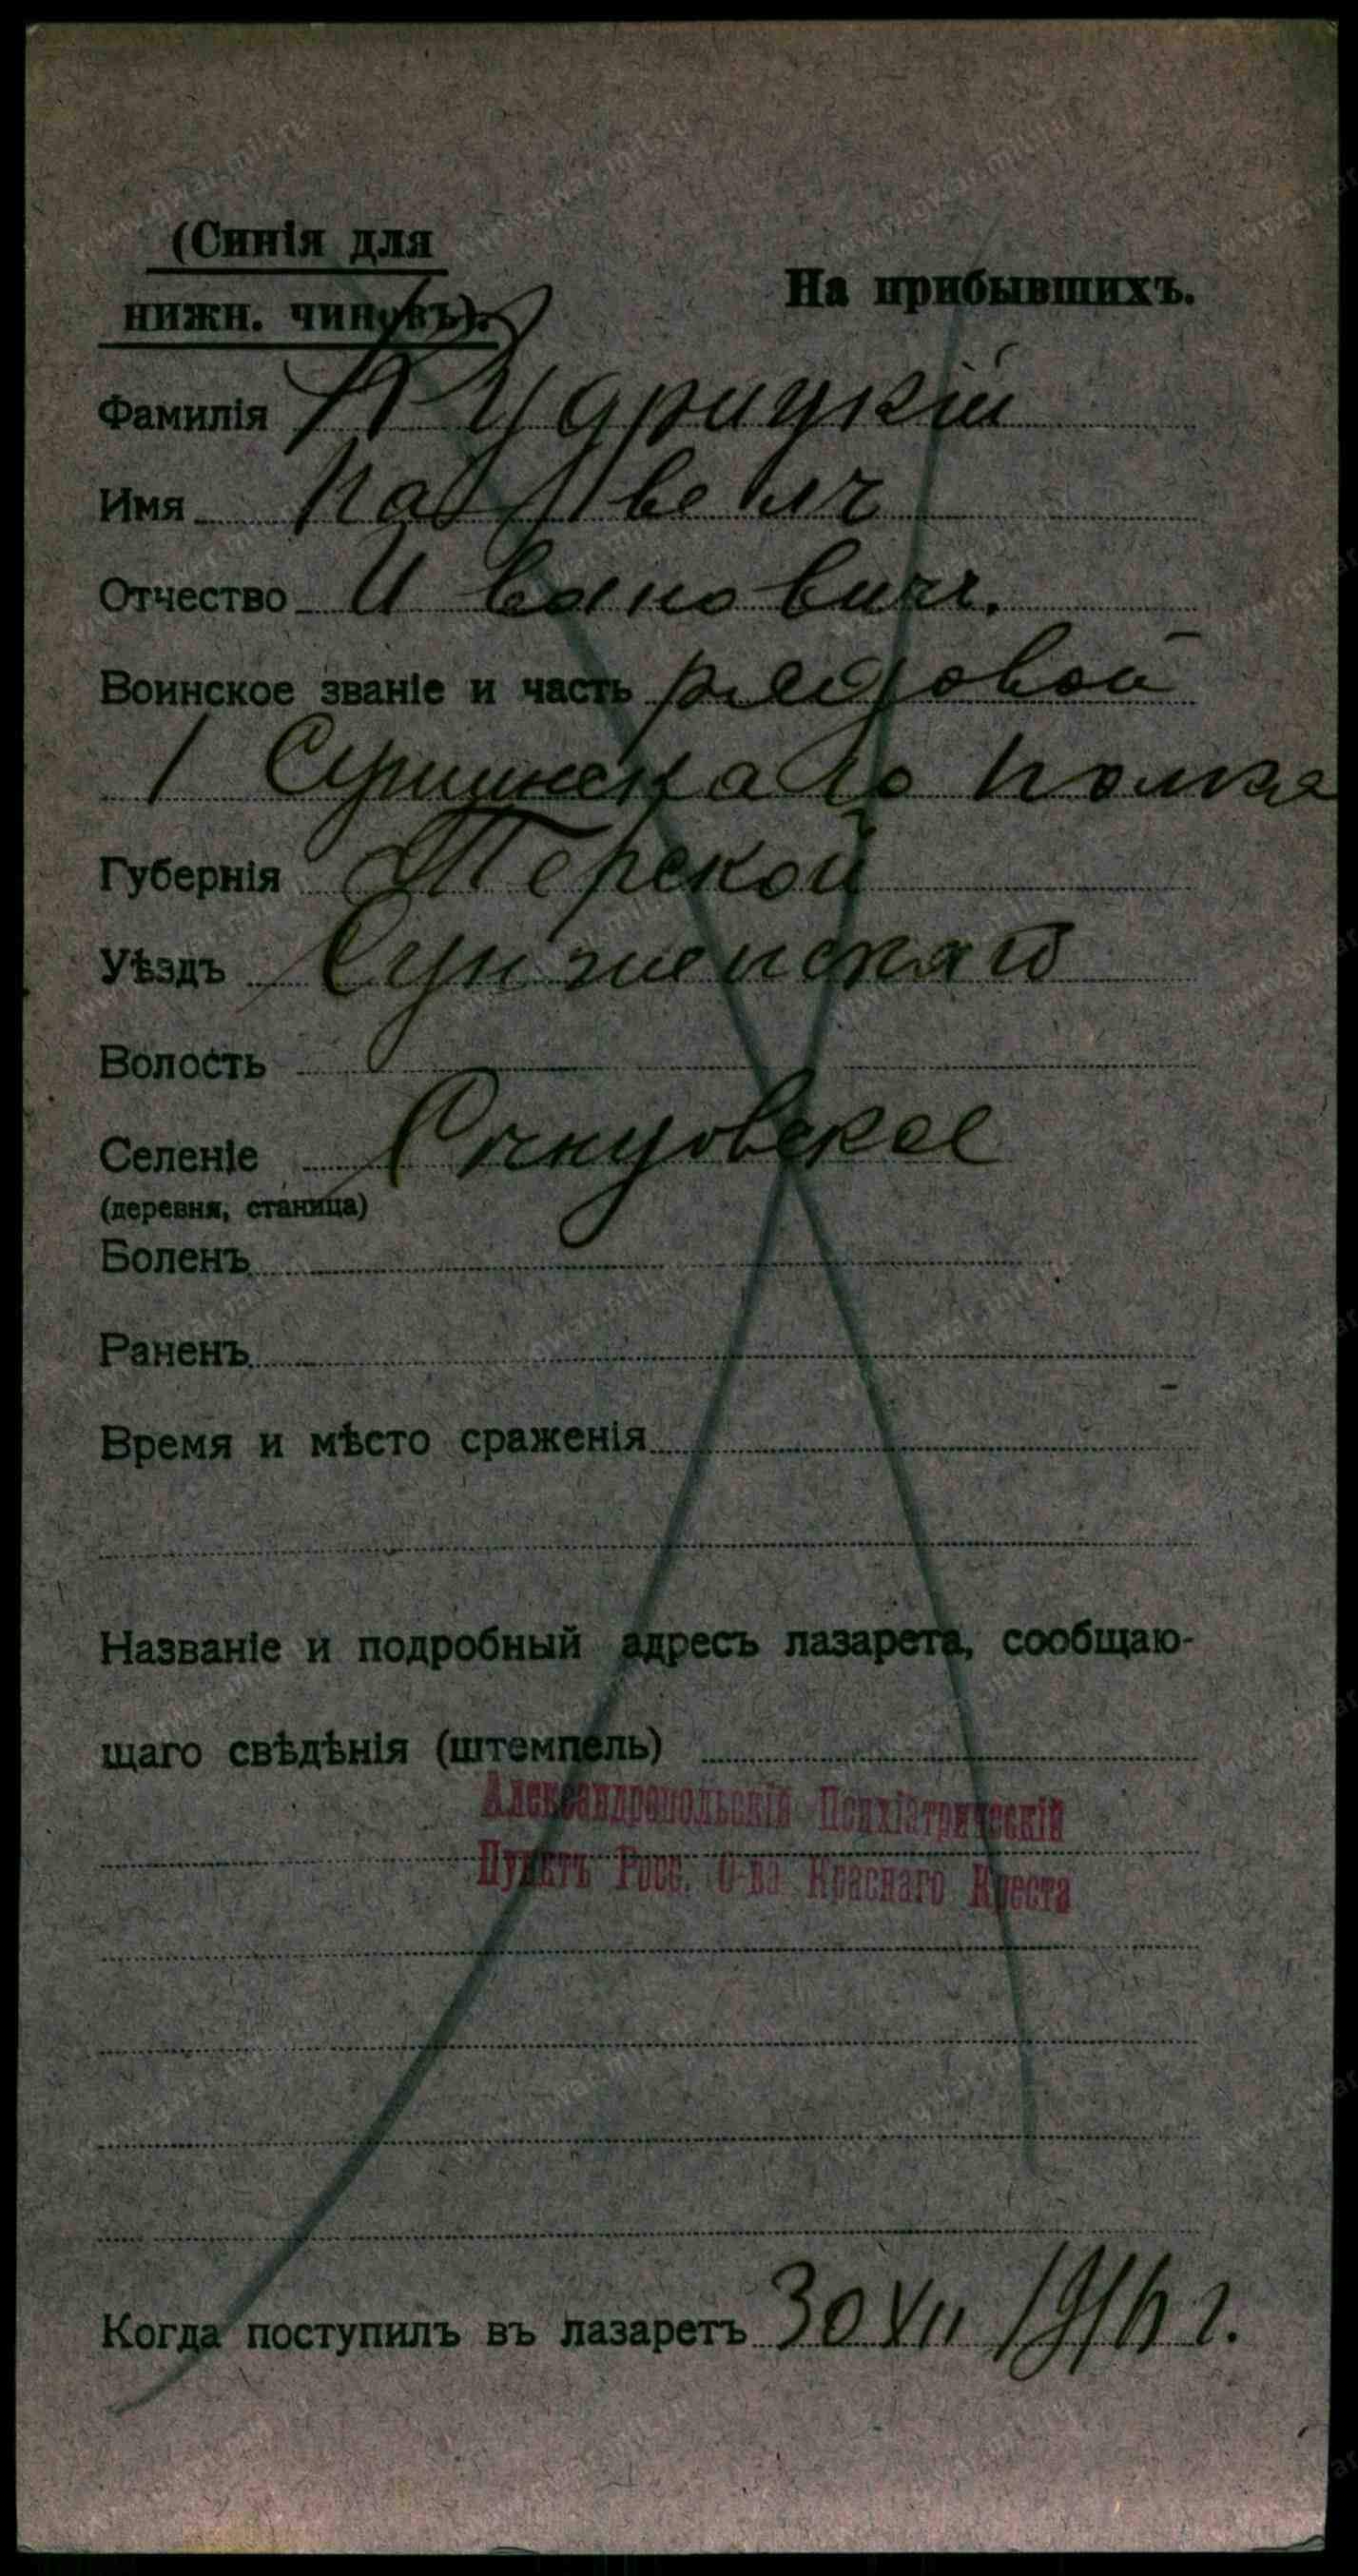 (Синія для
нижн. чиновъ).
На прибывшихъ.
Фамилія Кудрицкій
Имя Павелъ
Отчество Ивановичъ.
Воинское званіе и часть рядовой
1 полка
Губернія Терской
Уѣздъ Сунженскаго
Волость
Селеніе
(деревня, станица)
Боленъ
Раненъ
Время и мѣсто сраженія
Названіе и подробный адресъ лазарета, сообщаю-
щаго свѣдѣнія (штемпель)
Александропольскій Психіатрическій
Пунктъ Росс. О-ва Краснаго Креста
Когда поступилъ въ лазаретъ 30 XII 1916 г.